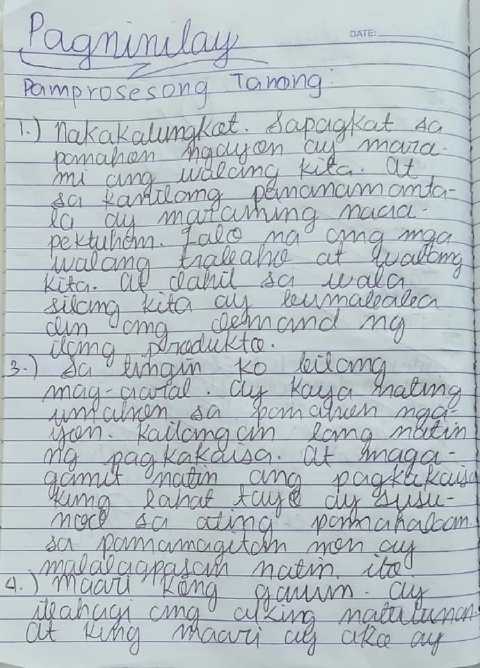 Pagninilay
DATE:
Pamprosesong Tanong:
1.) Nakakalungkot. Sapagkat sa
panahon ngayon ay mara-
mi ang walang kita. At
sa kanilang pananamanta-
la ay maraming naaa-
pektuhan. Lalo na ang mga
walang trabaho at walang
kita. At dahil sa wala
silang kita ay bumababa
din ang demand ng
ilang produkto.
3.) Sa tingin ko bilang
mag-aaral. ay kaya nating
unahan sa panahon nga-
yon. Kailangan lang natin
ng pagkakaisa. At maga-
gamit natin ang pagkakaisa
kung lahat tayo ay susu-
nod sa ating pamahalaan
sa pamamagitan non ay
malalagpasan natin ito.
4.) Maari kong gawin. ay
ibahagi ang aking natutunan
at kung maari ay ako ay